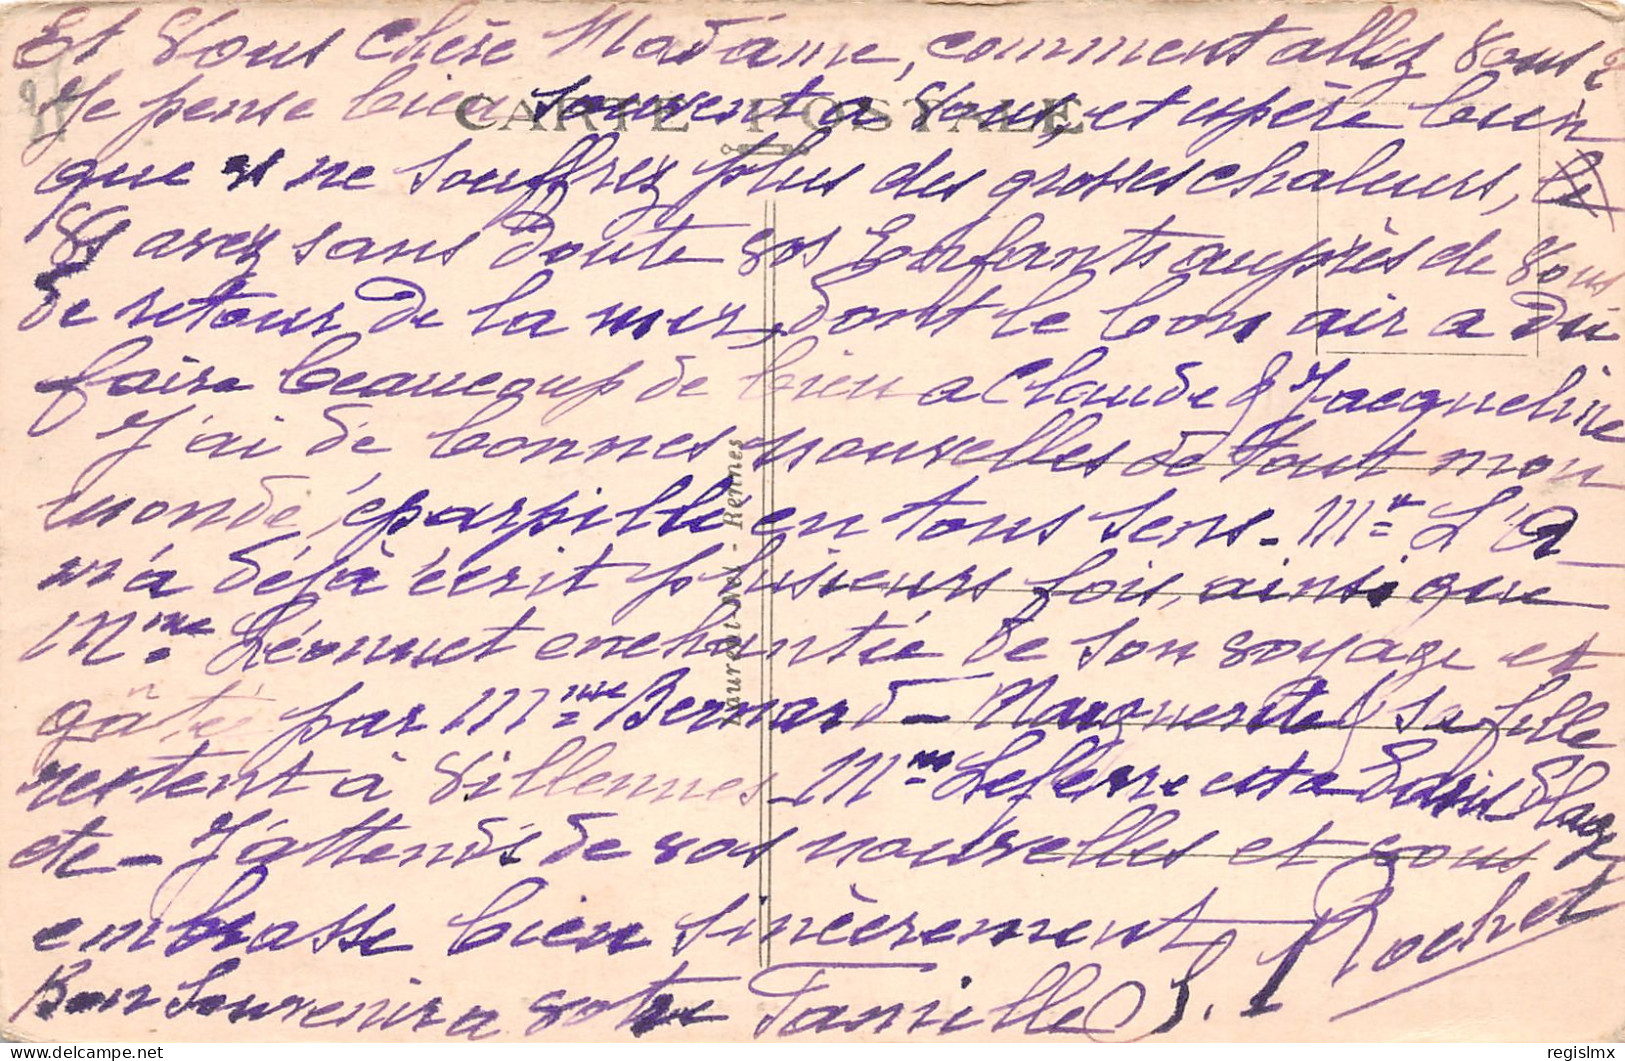 Et vous chère Madame, comment allez vous ?
Je pense bien souvent a vous, et espère bien
CARTE POSTALE
que vs ne souffrez plus des grosses chaleurs,
Vs avez sans doute vos Enfants auprès de vous
de retour de la mer, dont le bon air a dû
faire beaucoup de bien a Claude & Jacqueline
J'ai de bonnes nouvelles de tout mon
monde éparpillé en tous sens - Mr L'
m'a déjà écrit plusieurs fois, ainsi que
Mme Léonnet enchantée de son voyage et
gâtée par Mme Bernard - Marguerite & sa fille
restent à Villennes - Mme Lefèvre est a Paris Plage
etc - J'attends de vos nouvelles et vous
embrasse bien sincèrement
Bon souvenir a votre Famille S. Rochet
Laurent-Nel - Rennes
regislmx